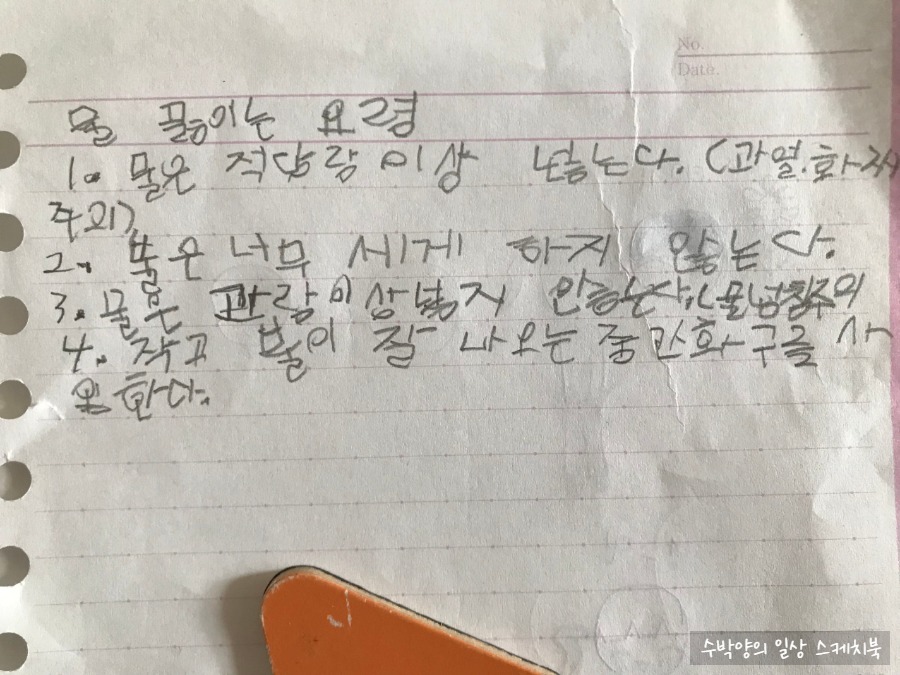 No.
Date.
물 끓이는 요령
1. 물은 적당량 이상 넣는다. (과열.화재
주의),
2. 불은 너무 세게 하지 않는다.
3. 물은 이상 넣지 않는다.(물넘침주의
4. 작고 불이 잘 나오는 중간화구를 사
용한다.
수박양의 일상 스케치북